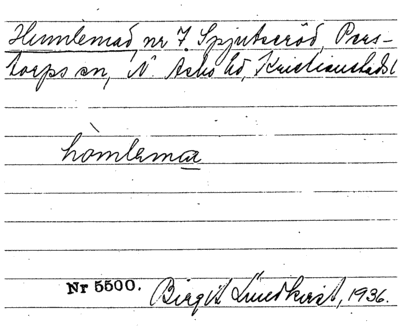 Humlemad, nr 7 Spjutseröd, Pers-
torps sn, N. Åsbo hd, Kristianstads l
hòmlemaꭤ
Nr 5500. Birgit Lundkvist, 1936.